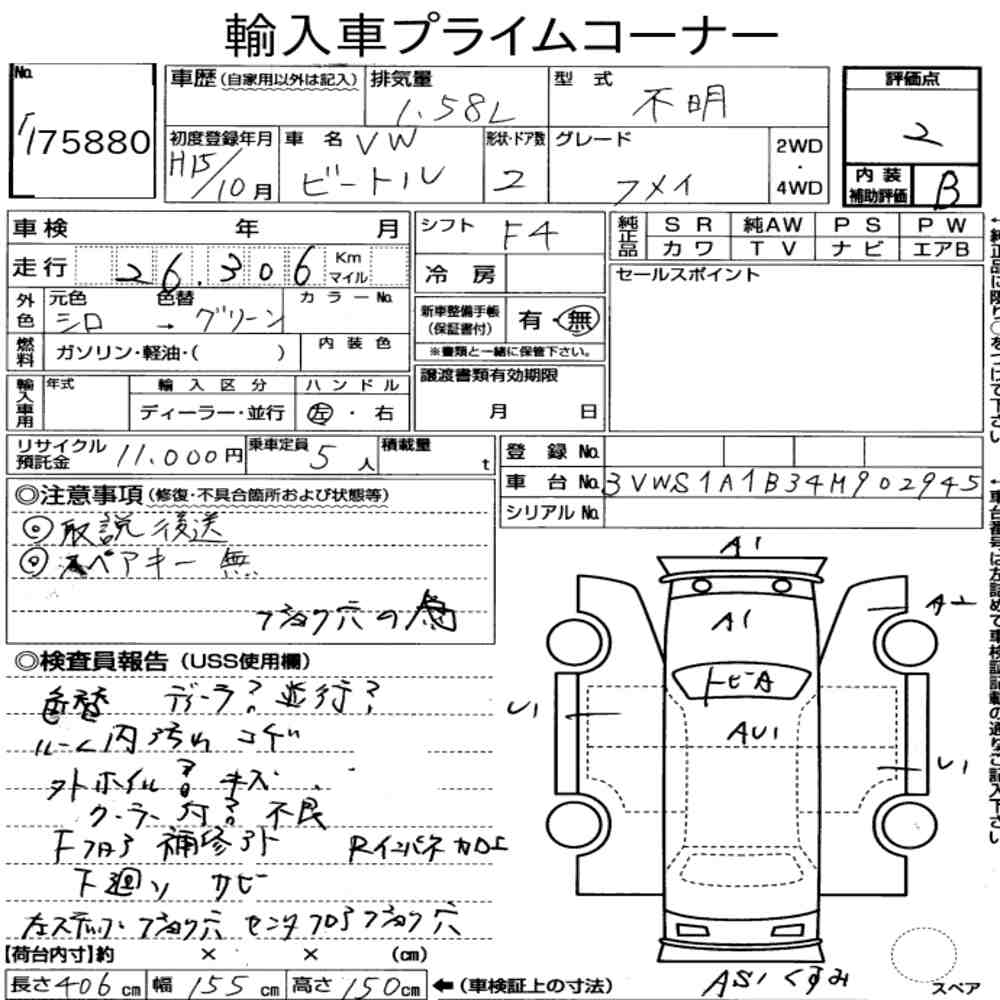 輸入車プライムコーナー
No.
175880
車歴(自家用以外は記入)
排気量
1.58L
型 式
不明
評価点
2
初度登録年月
H15/10月
車 名 VW
ビートル
形状・ドア数
2
グレード
フメイ
2WD
・
4WD
内装
補助評価
B
車検 年 月
シフト
F4
純正品
SR 純AW PS PW
カワ TV ナビ エアB
走行 26.306 Km
マイル
冷房
セールスポイント
外色
元色 色替 カラーNo.
シロ → グリーン
新車整備手帳
(保証書付)
有・無
※書類と一緒に保管下さい。
燃料
ガソリン・軽油・( )
内装色
譲渡書類有効期限
月 日
輸入車用
年式
輸入区分
ディーラー・並行
ハンドル
左・右
リサイクル
預託金
11.000円
乗車定員
5人
積載量
t
登録No.
車台No. 3VWS1A1B34M902945
シリアルNo.
◎注意事項(修復・不具合箇所および状態等)
◎取説後送
◎スペアキー無
フショク穴の為
◎検査員報告(USS使用欄)
色替 ディーラ?並行?
ルーム内汚れ コゲ
外ホイル キズ
クーラー 灯?不良
Fフロア補修跡 Rインパネ加工
下廻り サビ
左ステップフショク穴 センタフロアフショク穴
【荷台内寸】約 × × (cm)
長さ406cm 幅155cm 高さ150cm ←(車検証上の寸法)
A1
A1
A2
トビA
U1
AU1
U1
AS1 くすみ
スペア
↑純正品に限り○をつけて下さい
↑車台番号は左詰めで車検証記載の通りご記入下さい